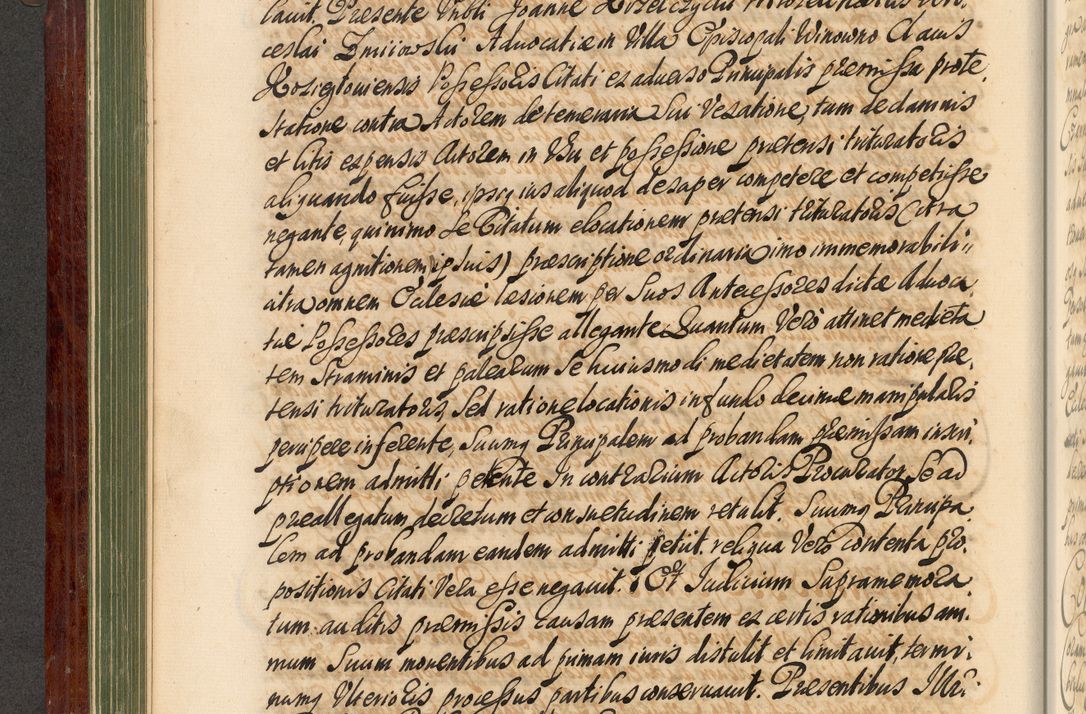 cavit. Præsente Vrbli Joanne
ceslai Zmiiowski Advocatiæ in Villa Episcopali Winowno Ac aus
Kozieglouiensis Possessoris Citati ex adverso Principalis præmissa prote,
statione contra Actorem de temeraria Sui Vexatione, tum de damnis
et litis expensis Actorem in Vsu et possessione prætensi trituratoris
aliquando fuisse, ipsiq ius aliquod desuper competere et competiisse
negante, quinimo Se Citatum elocationem prætensi trituratoris (citra
tamen agnitionem ipsius) præscriptione ordinaria imo immemorabili
citra omnem Ecclesiæ læsionem per Suos Antecessores dictæ Advoca,
tiæ Possessores præscripsisse allegante. Quantum Verò attinet medieta
tem Straminis et palearum Se huiusmodi medietatem non ratione præ,
tensi trituratoris, Sed ratione locationis in fundo decimæ manipularis
percipere inferente, Suumq Principalem ad probandam præmissam inscri,
ptionem admitti petente In contrarium Actoris Procurator Se ad
præallegatum decretum et consuetudinem retulit. Suumq Principa
lem ad probandam eandem admitti petiit. reliqua Verò contenta pro,
positionis Citati Vera esse negavit. Et Iudicium Supramemora
tum auditis præmissis causam præsentem ex certis rationibus ani,
mum Suum moventibus ad primam iuris distulit et limitavit, termi,
numq Vlterioris processus partibus conservavit. Præsentibus Illri